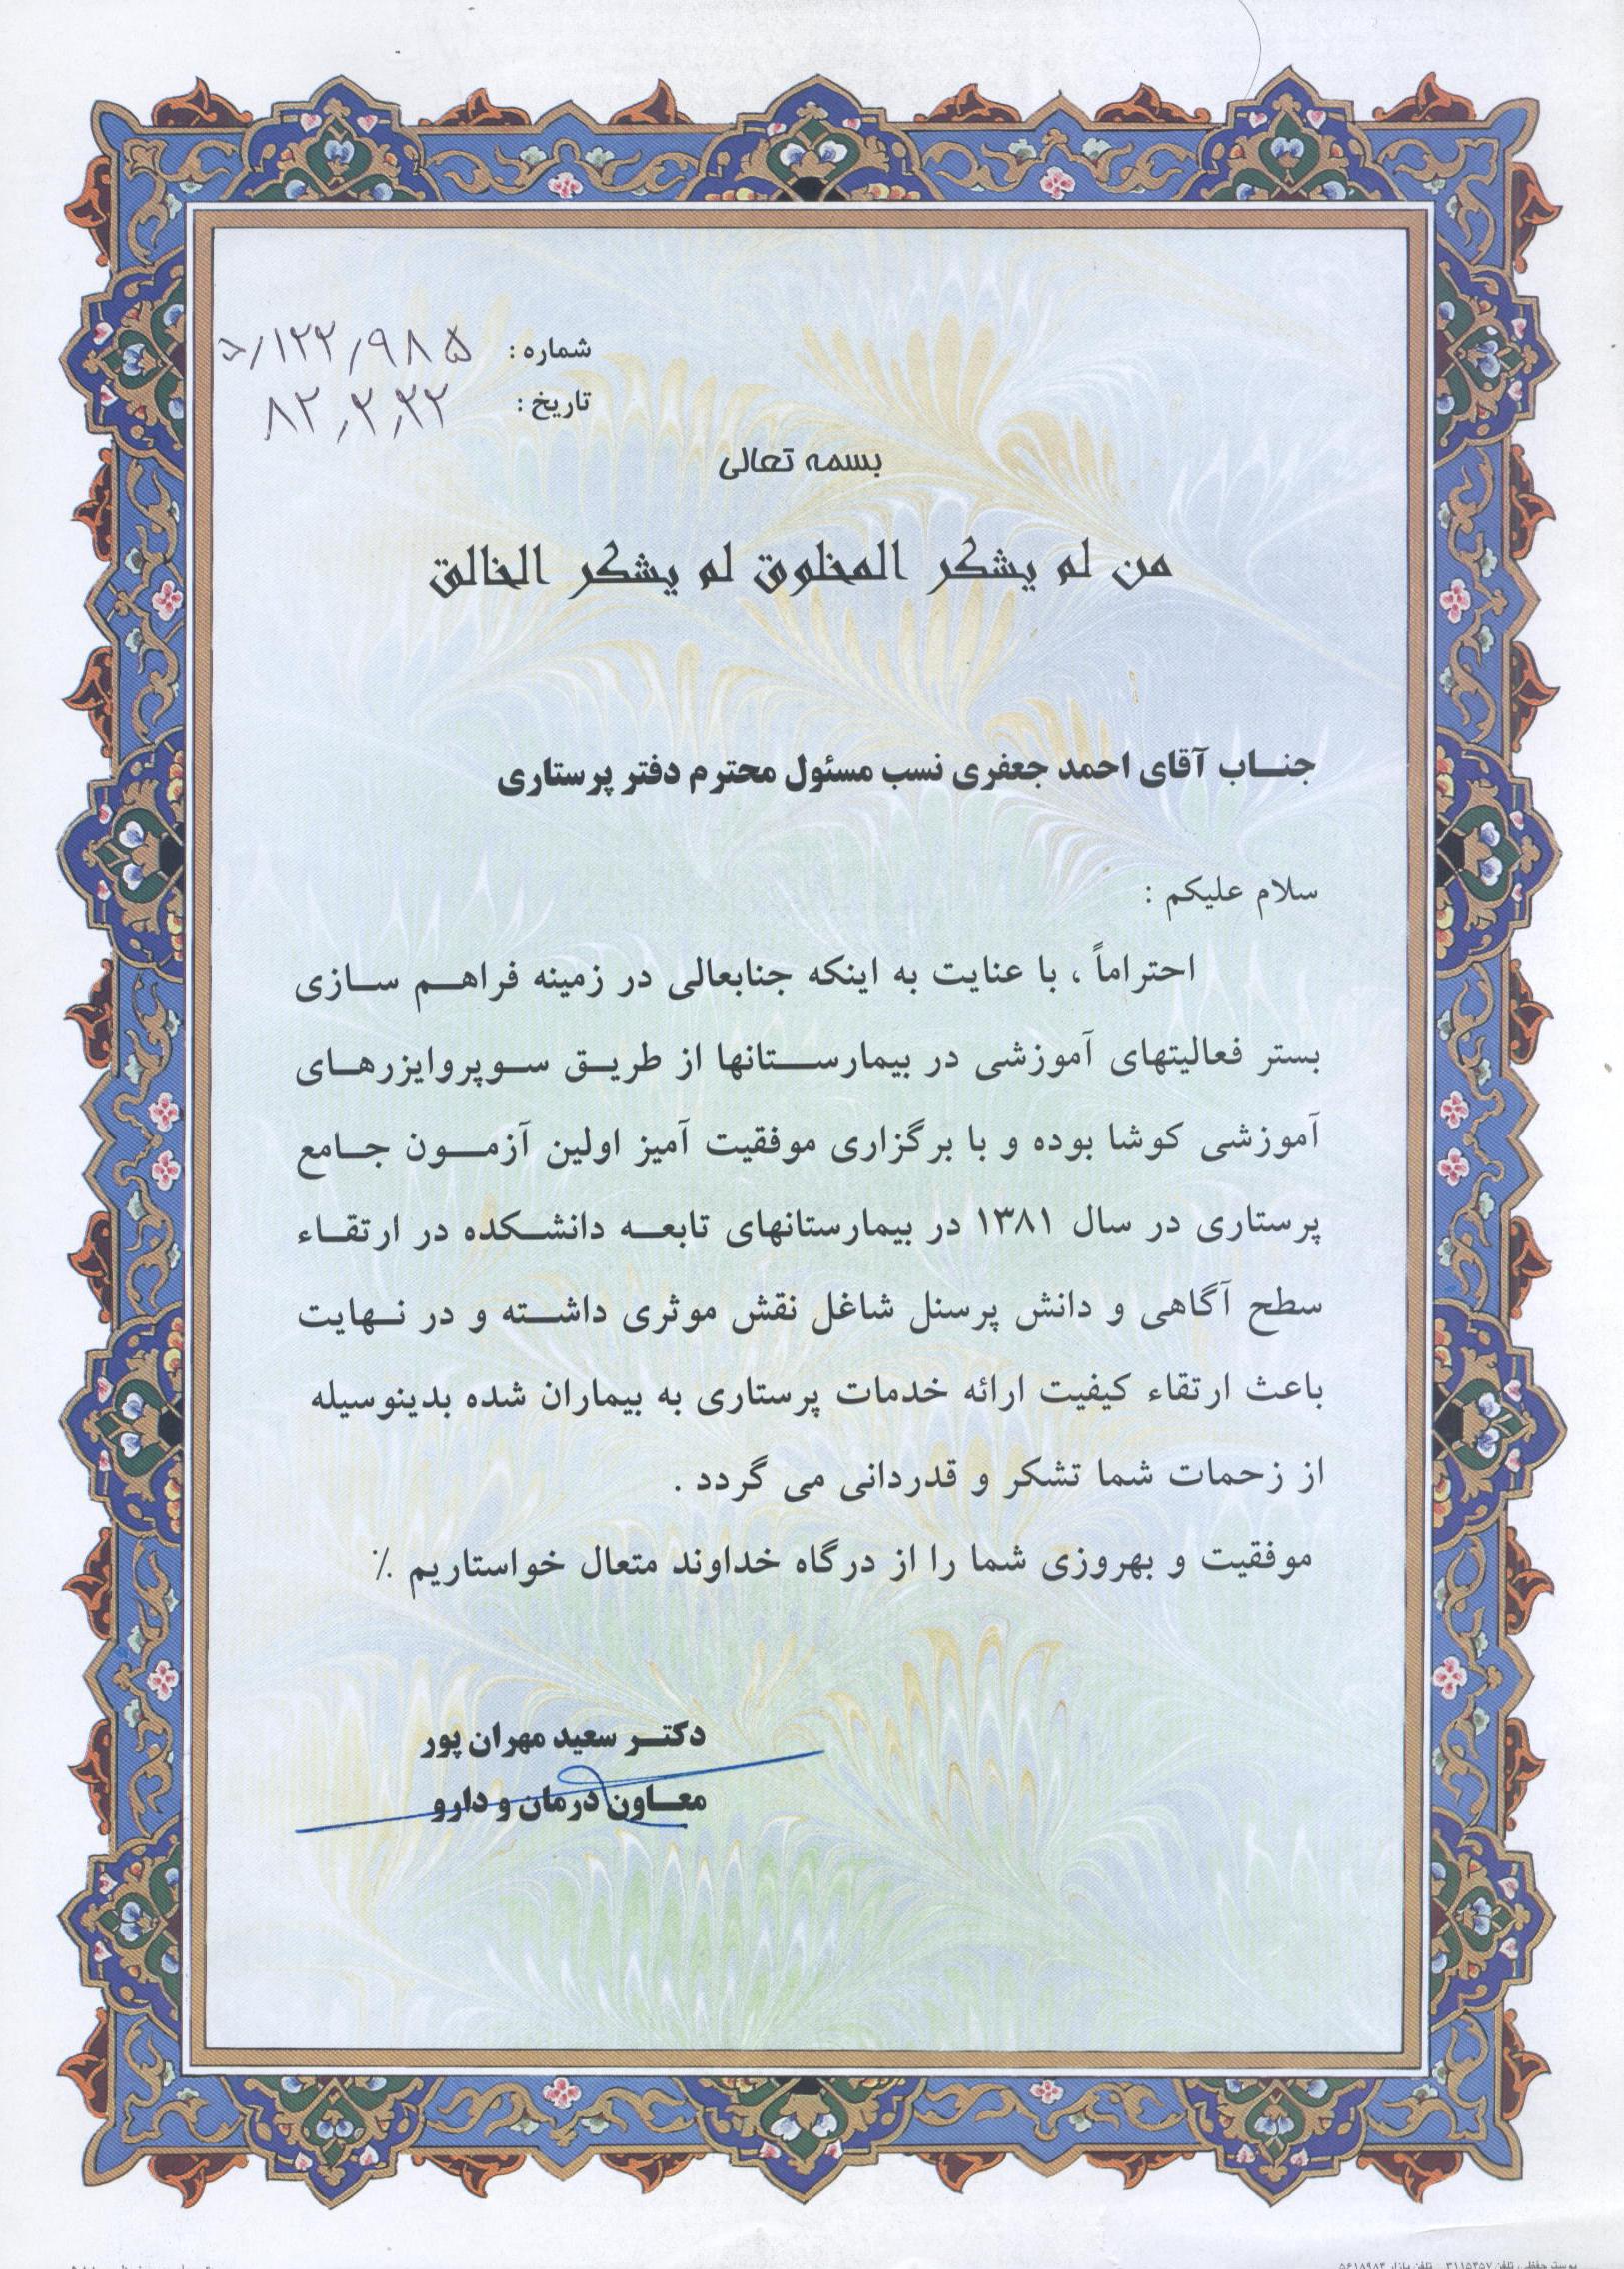 شماره : ۵/۱۲۲/۹۸۵
تاریخ : ۸۲/۲/۲۲
بسمه تعالی
من لم یشکر المخلوق لم یشکر الخالق
جنـاب آقای احمد جعفری نسب مسئول محترم دفتر پرستاری
سلام علیکم :
احتراماً ، با عنایت به اینکه جنابعالی در زمینه فراهـم سـازی
بستر فعالیتهای آموزشی در بیمارسـتانها از طریـق سـوپروایزرهـای
آموزشی کوشا بوده و با برگزاری موفقیت آمیز اولین آزمـون جـامع
پرستاری در سال ۱۳۸۱ در بیمارستانهای تابعـه دانشـکده در ارتقـاء
سطح آگاهی و دانش پرسنل شاغل نقش موثری داشـته و در نـهایت
باعث ارتقاء کیفیت ارائه خدمات پرستاری به بیماران شده بدینوسیله
از زحمات شما تشکر و قدردانی می گردد .
موفقیت و بهروزی شما را از درگاه خداوند متعال خواستاریم ٪
دکتـر سعید مهران پور
معـاون درمان و دارو